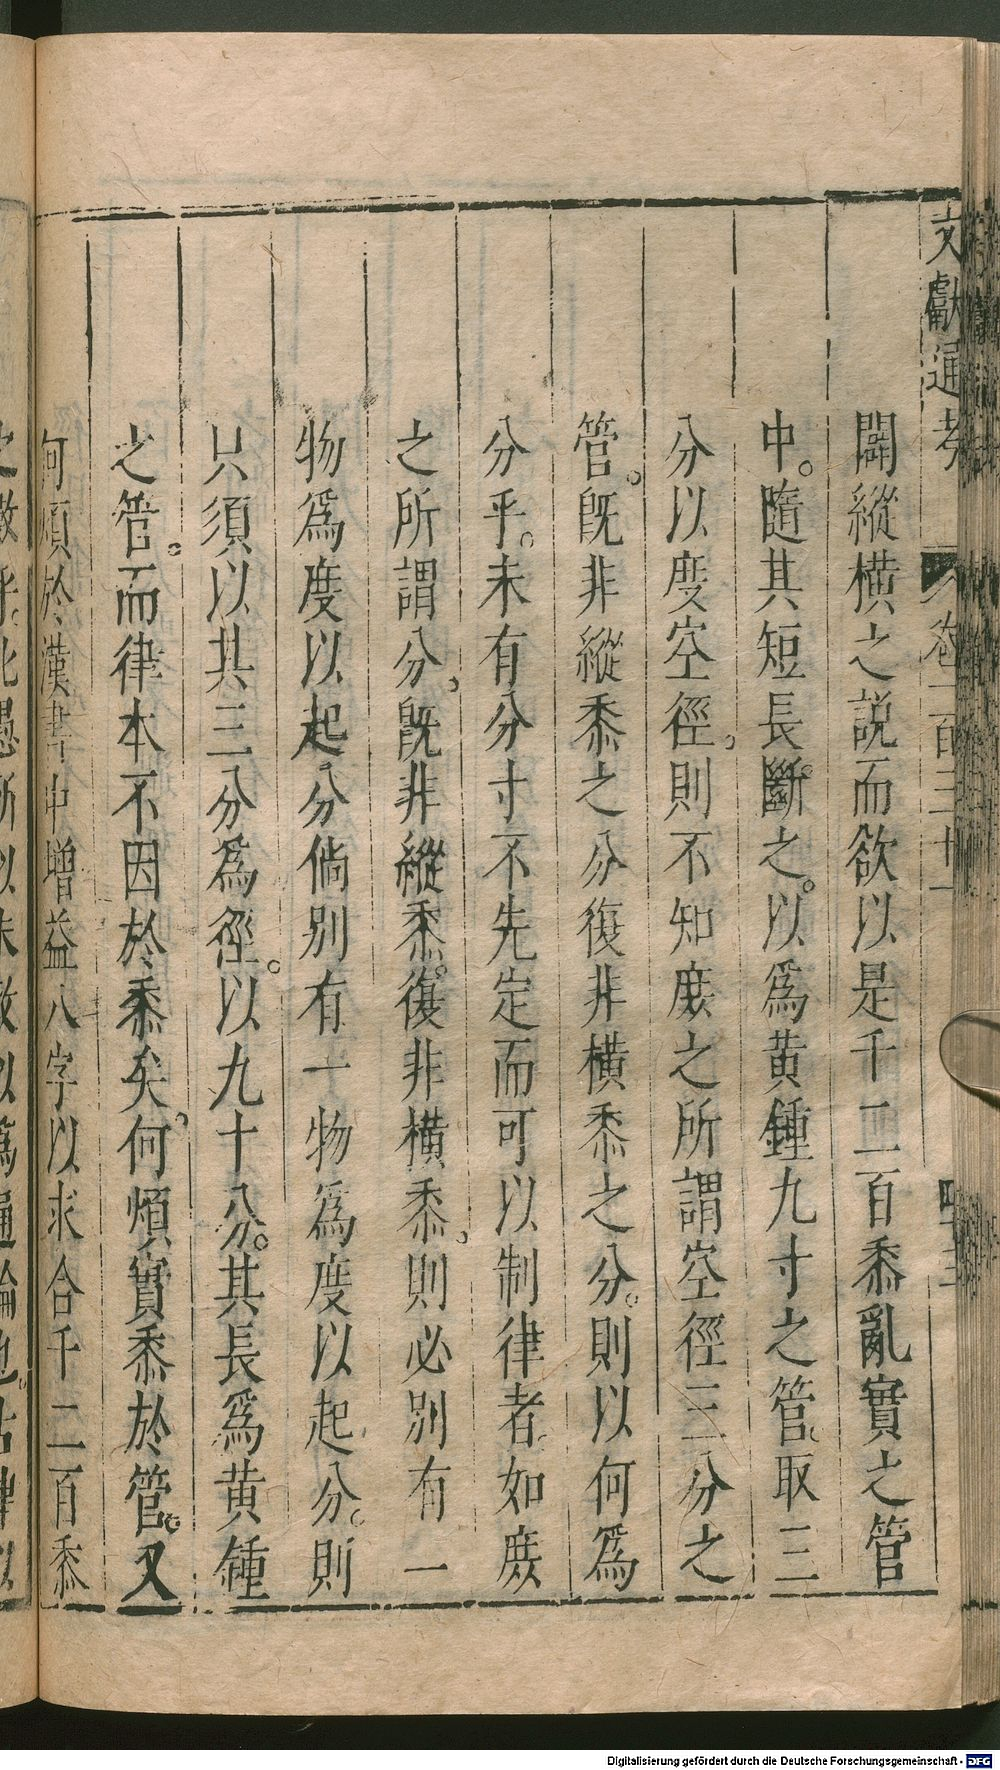 文獻通考 卷一百三十一 四十三
闢縱橫之説而欲以是千二百黍亂實之管
中。隨其短長斷之。以爲黄鍾九寸之管。取三
分以度空徑，則不知庻之所謂空徑三分之
管。旣非縱黍之分復非橫黍之分。則以何爲
分乎。未有分寸不先定而可以制律者。如庻
之所謂分，旣非縱黍。復非橫黍，則必別有一
物爲度以起分倘別有一物爲度以起分。則
只須以其三分爲徑。以九十分。其長爲黄鍾
之管。而律本不因於黍矣。何煩實黍於管。又
何煩於漢書中增益八字以求合千二百黍
之數乎。此愚所以未敢以爲通論也。古律以
Digitalisierung gefördert durch die Deutsche Forschungsgemeinschaft - DFG